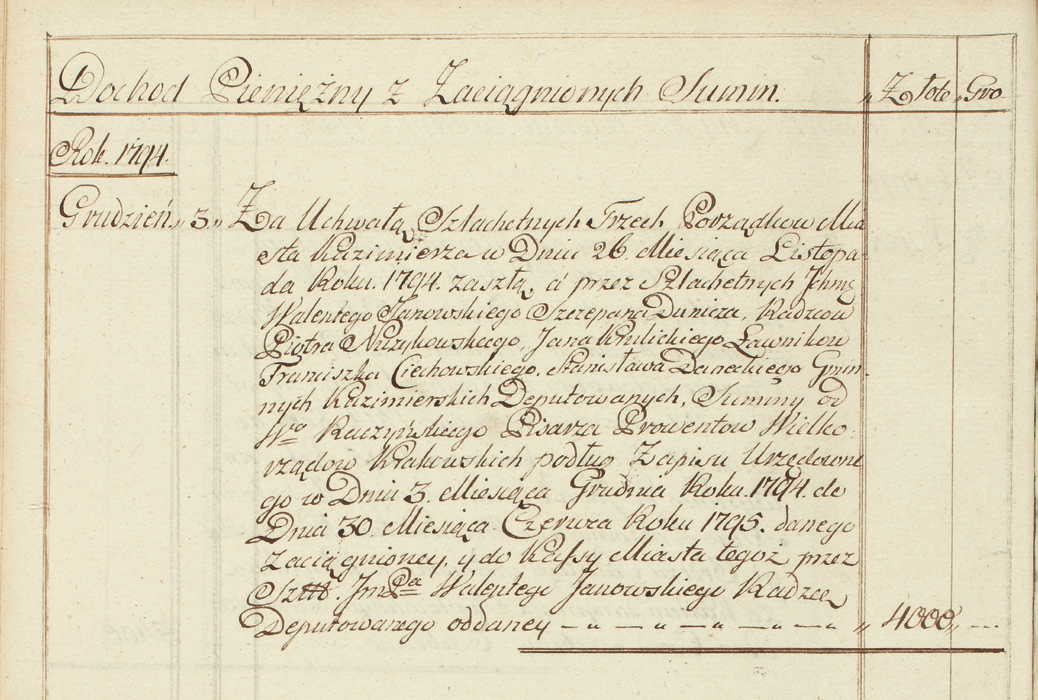 Dochod Pieniężny z Zaciągnionych Summ. „ Złote „ Gro
Rok. 1794.
Grudzień „ 3 „ Za Uchwałą Szlachetnych Trzech Porządkow Mia
sta Kazimierza w Dniu 26. Miesiąca Listopa-
da Roku. 1794. zaszłą, á przez Szlachetnych Jchmć
Walentego Janowskiego Szczepana Dunicza, Radzcow
Piotra Muzykowskiego, Jana Krulickiego Ławnikow
Franciszka Ciechowskiego. Stanisława Daneckiego Gmin-
nych Kazimierskich Deputowanych, Summy od
Wo Raczyńskiego Pisarza Prowentow Wielko
rządow Krakowskich podług Zapisu Urzędowne
go w Dniu 3. Miesiąca Grudnia Roku. 1794. do
Dnia 30. Miesiąca Czerwca Roku 1795. danego
Zaciągnioney, y do Kassy Miasta tegoż przez
Szttt. JmPa Walentego Janowskiego Radzcę
Deputowanego oddaney — „ — „ — „ — „ — „ „ 4000 „ ...